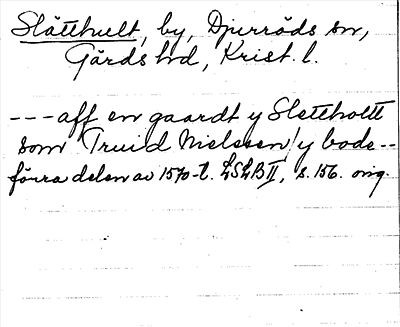 Slätthult, by, Djurröds sn,
Gärds hd, Krist. l.
---aff en gaardt y Slettholtt
som Truid Nielssen y bode--
förra delen av 1570-t. LSLB II, s. 156. orig.